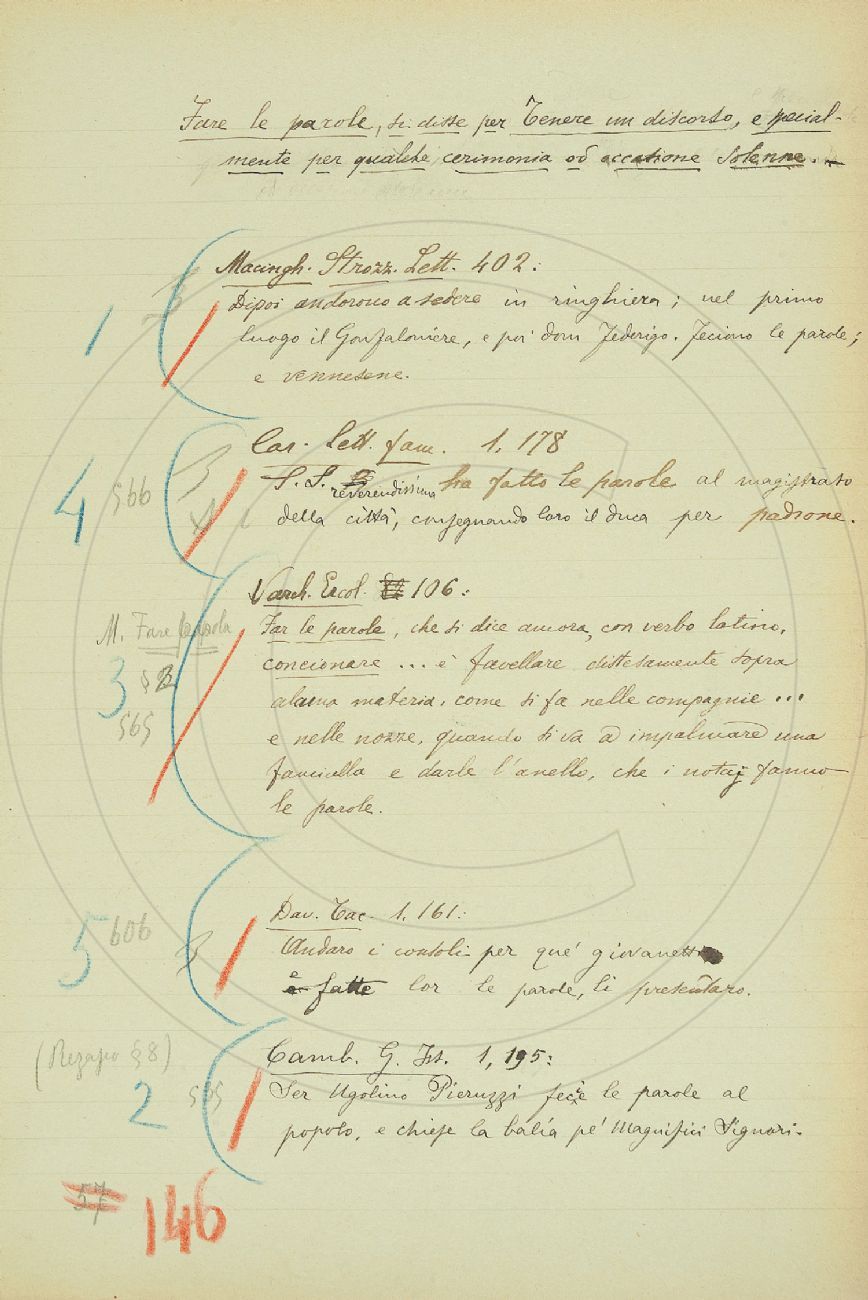 Fare le parole, si disse per Tenere un discorso, special-
mente per qualche cerimonia od occasione solenne.
Macingh. Strozz. Lett. 402:
Dipoi andorono a sedere in ringhiera; nel primo
1
luogo il Gonfaloniere, e poi dom Federigo. Feciono le parole;
e vennesene.
Car. Lett. fam. 1, 178
4 566
S. S. reverendissima ha fatto le parole al magistrato
della città, consegnando loro il duca per padrone.
Varch. Ercol. 106:
M. Fare parola
Far le parole, che si dice ancora, con verbo latino,
3 § 2
concionare ... è favellare distesamente sopra
alcuna materia, come si fa nelle compagnie ...
565
e nelle nozze, quando si va a impalmare una
fanciulla e darle l'anello, che i notaj fanno
le parole.
Dav. Tac. 1, 161:
5 606
Andaro i consoli per que' giovanetti
e fatte lor le parole, li presentaro.
(§ 8)
Camb. G. Ist. 1, 195:
2 565
Ser Ugolino Pieruzzi fece le parole al
popolo, e chiese la balía pe' Magnifici Signori.
57 146